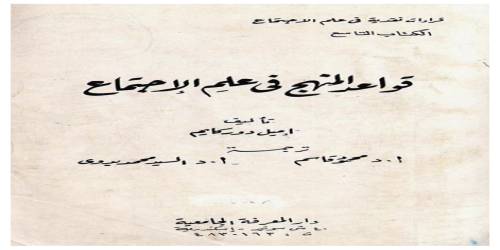 قراءات نقدية فى علم الاجتماع
الكتاب التاسع
قواعد المنهج فى علم الإجتماع
تأليف
إميل دوركايم
ترجمة
أ. د محمود قاسم أ. د السيد محمد بدوى
دار المعرفة الجامعية
٤٠ ش سوتير - إسكندرية
ت : ٤٨٣٠١٦٣